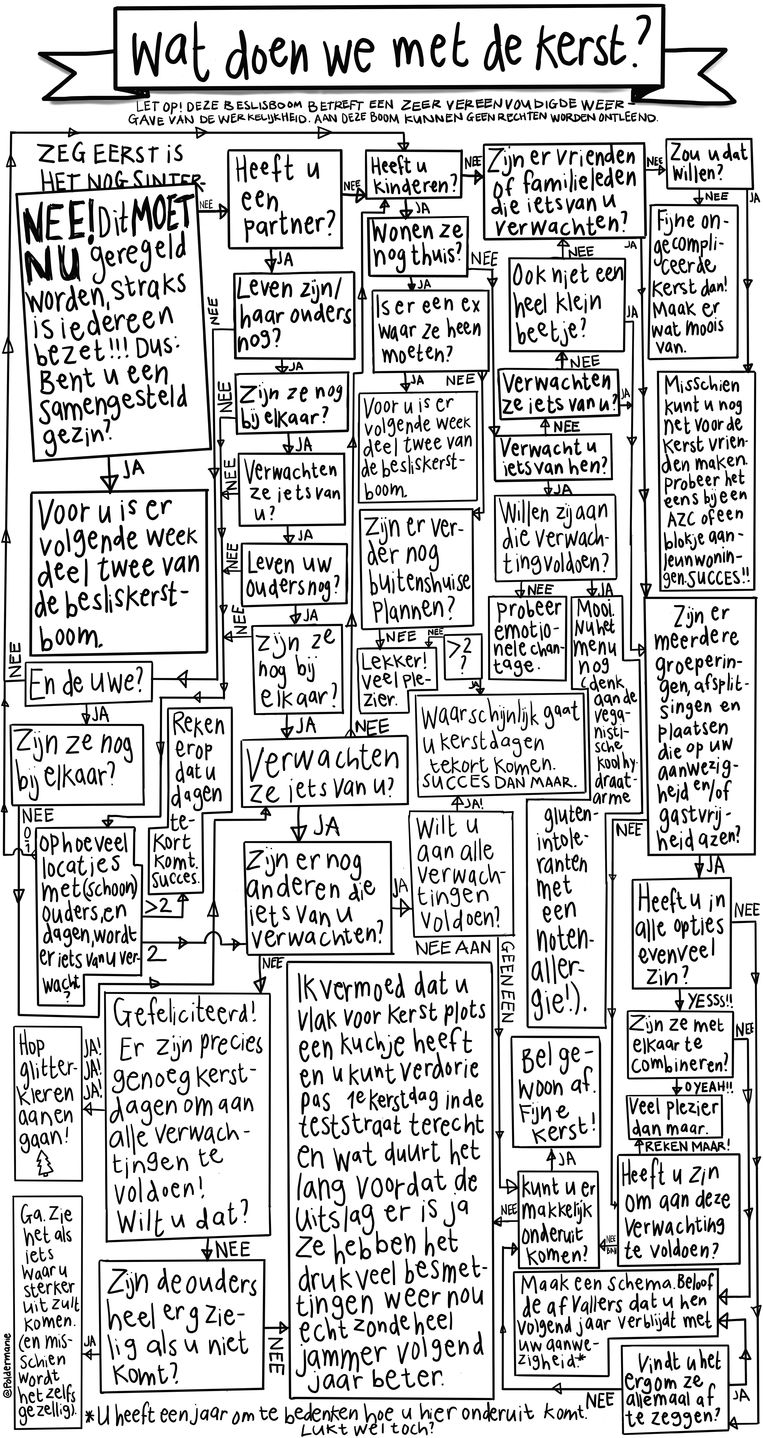 Wat doen we met de kerst?
LET OP! DEZE BESLISBOOM BETREFT EEN ZEER VEREENVOUDIGDE WEER-
GAVE VAN DE WERKELIJKHEID. AAN DEZE BOOM KUNNEN GEEN RECHTEN WORDEN ONTLEEND.
ZEG EERST IS
HET NOG SINTER
NEE! Dit MOET
NU geregeld
worden, straks
is iedereen
bezet!!! Dus:
Bent u een
samengesteld
gezin?
NEE
JA
Voor u is er
volgende week
deel twee van
de besliskerst-
boom.
Heeft u
een
partner?
NEE
JA
Leven zijn/
haar ouders
nog?
NEE
JA
Zijn ze nog
bij elkaar?
NEE
JA
Verwachten
ze iets van
u?
NEE
JA
Leven uw
ouders nog?
NEE
JA
Zijn ze
nog bij
elkaar?
NEE
JA
Verwachten
ze iets van u?
NEE
JA
En de uwe?
NEE
JA
Zijn ze nog
bij elkaar?
NEE
JA
Op hoeveel
locaties
met (schoon)
ouders, en
dagen, wordt
er iets van u ver-
wacht?
>2
2
Reken
erop
dat u
dagen
te-
kort
komt.
Succes.
Zijn er nog
anderen die
iets van u
verwachten?
JA
NEE
Heeft u
kinderen?
NEE
JA
Wonen ze
nog thuis?
NEE
JA
Is er een ex
waar ze heen
moeten?
JA
NEE
Voor u is er
volgende week
deel twee van
de besliskerst-
boom.
Zijn er ver-
der nog
buitenshuise
plannen?
NEE
NEE
>2
?
JA
Lekker!
veel ple-
zier.
Waarschijnlijk gaat
u kerstdagen
tekort komen.
SUCCES DAN MAAR.
JA!
Wilt u
aan alle
verwach-
tingen
voldoen?
NEE AAN
GEEN EEN
Zijn er vrienden
of familieleden
die iets van u
verwachten?
NEE
JA
NEE
Ook niet een
heel klein
beetje?
JA
NEE
Verwachten
ze iets van u?
JA
NEE
Verwacht u
iets van hen?
JA
Willen zij aan
die verwach-
ting voldoen?
NEE
JA
Probeer
emotio-
nele chan-
tage.
Mooi.
Nu het
menu
nog
(denk
aan de
vega-
nisti-
sche
koolhy-
draat-
arme
gluten-
intole-
ranten
met
een
noten-
aller-
gie!).
Zou u dat
willen?
NEE
JA
Fijne on-
gecompli-
ceerde
kerst dan!
Maak er
wat moois
van.
Misschien
kunt u nog
net voor de
kerst vrien-
den maken.
Probeer het
eens bij een
AZC of een
blokje aan-
leunwonin-
gen. SUCCES!!
Zijn er
meerdere
groeperin-
gen, afsplit-
singen en
plaatsen
die op uw
aanwezig-
heid en/of
gastvrij-
heid azen?
NEE
JA
Heeft u in
alle opties
evenveel
zin?
NEE
YESSS!!
Zijn ze met
elkaar te
combineren?
NEE
O YEAH!!
Veel plezier
dan maar.
REKEN MAAR!
Heeft u zin
om aan deze
verwachting
te voldoen?
NEE
Kunt u er
makkelijk
onderuit
komen?
JA
NEE
Bel ge-
woon af.
Fijne
kerst!
Maak een schema. Beloof
de afvallers dat u hen
volgend jaar verblijdt met
uw aanwe-
zigheid.*
Vindt u het
erg om ze
allemaal af
te zeggen?
JA
NEE
Gefeliciteerd!
Er zijn precies
genoeg kerst-
dagen om aan
alle verwach-
tingen te
voldoen!
Wilt u dat?
JA!
JA!
JA!
NEE
Hop
glitter-
kleren
aan en
gaan!
Zijn de ouders
heel erg zie-
lig als u niet
komt?
JA
NEE
Ga. Zie
het als
iets
waar u
sterker
uit zult
komen.
(en mis-
schien
wordt
het zelfs
gezellig).
Ik vermoed dat u
vlak voor kerst plots
een kuchje heeft
en u kunt verdorie
pas 1e kerstdag in de
teststraat terecht
en wat duurt het
lang voordat de
uitslag er is ja
ze hebben het
druk veel besmet-
tingen weer nou
echt zonde heel
jammer volgend
jaar beter.
*U heeft een jaar om te bedenken hoe u hier onderuit komt.
LUKT WEL TOCH?
©Poldermarie